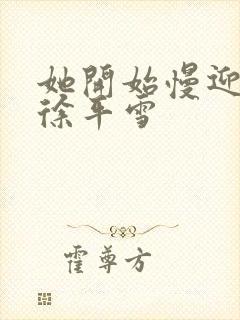 她開始慢迎
徐平雪
霍尊方